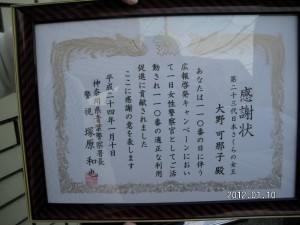 感謝状
第二十三代日本さくらの女王
大野可那子殿
あなたは一一〇番の日に伴う
広報啓発キャンペーンにおい
て一日女性警察官としてご活
動され一一〇番の適正な利用
促進に貢献されました
ここに感謝の意を表します
平成二十四年一月十日
神奈川県青葉警察署長
警視 塚原和也
2012.01.10